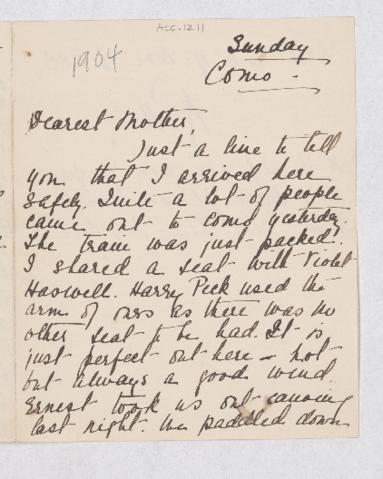 Acc. 1211
1904
Sunday
Como.
Dearest Mother,
Just a line to tell
you that I arrived here
safely. Quite a lot of people
came out to Como yesterday.
The tram was just packed.
I shared a seat with Violet
Haswell. Harry Peek used the
arm of ours as there was no
other seat to be had. It is
just perfect out here – hot
but always a good wind.
Ernest took us out canoeing
last night. We paddled down